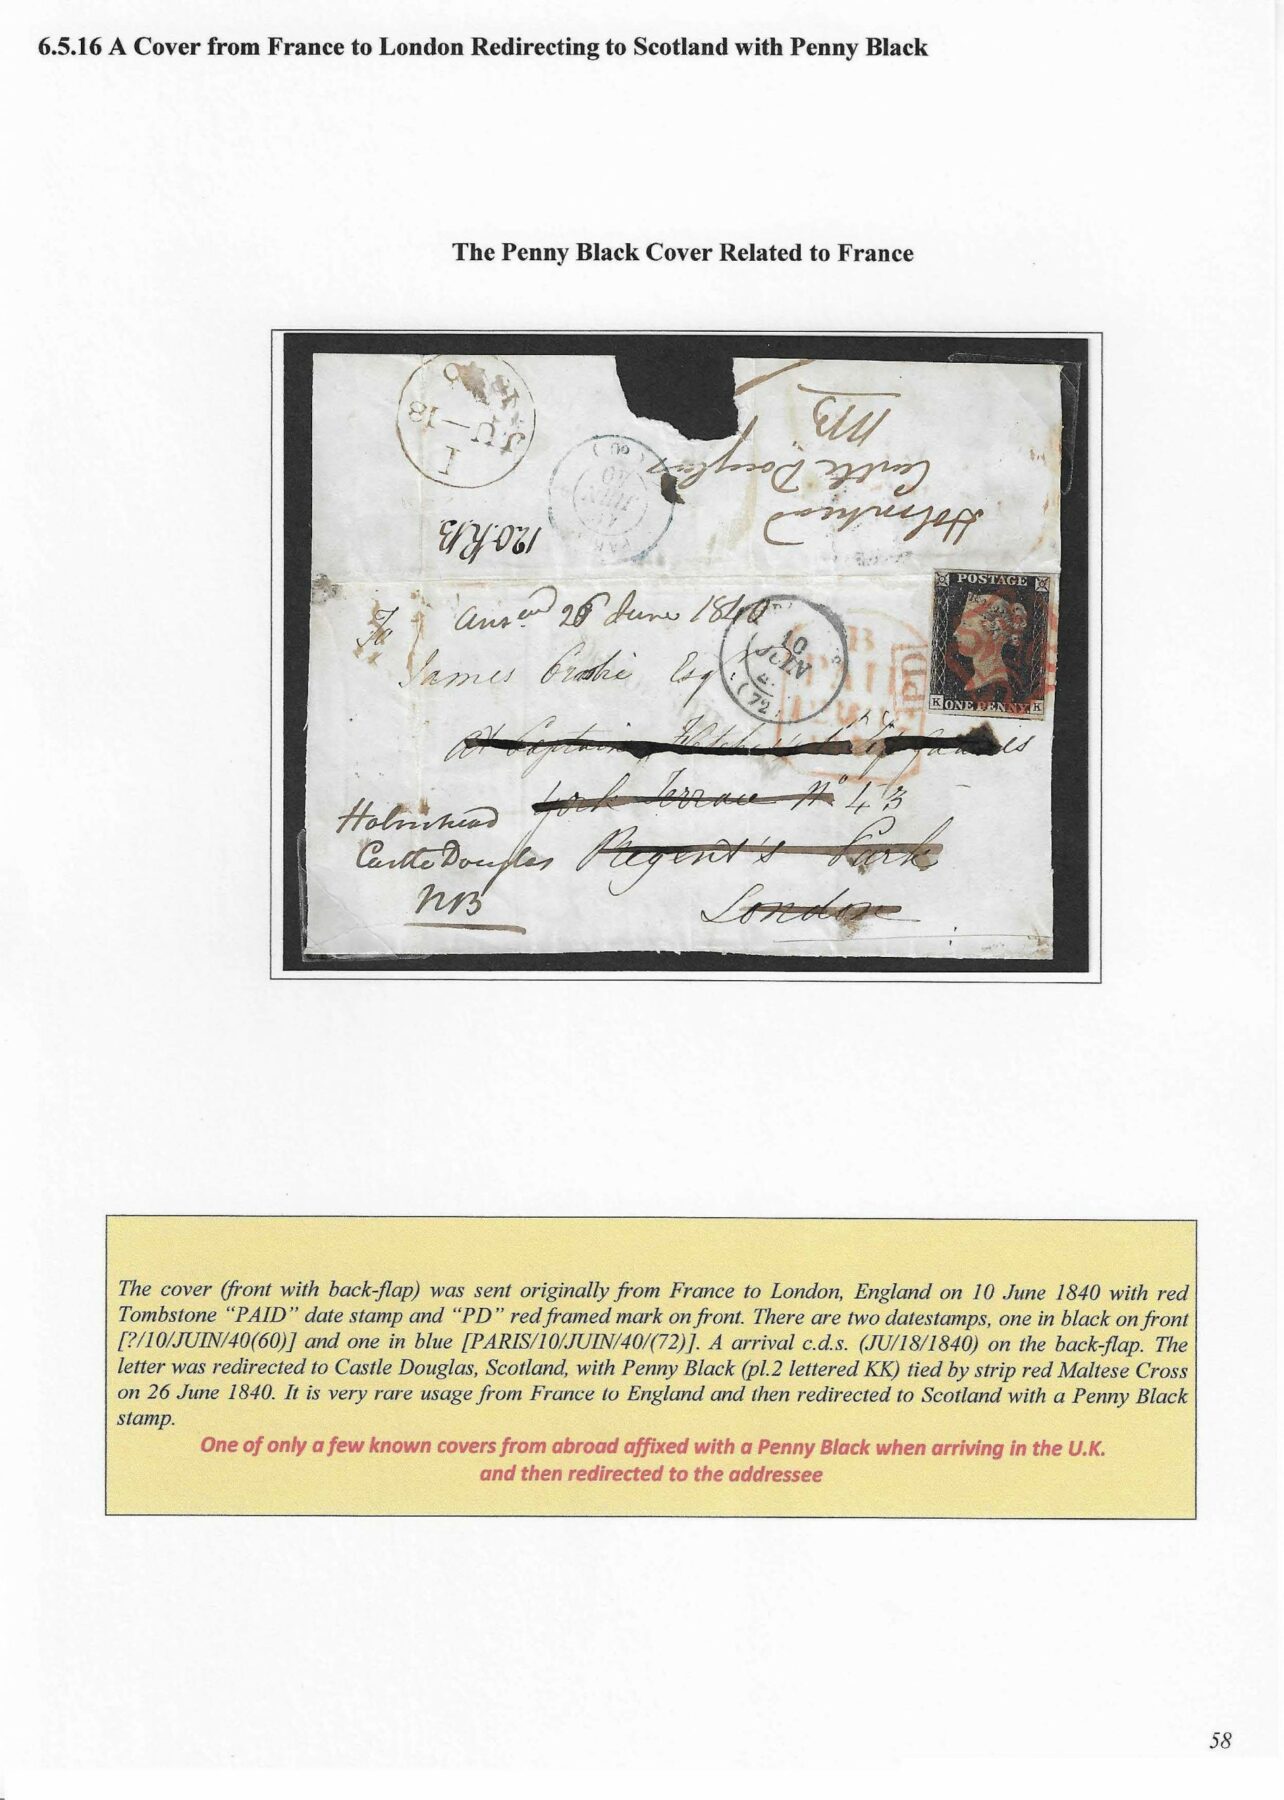 6.5.16 A Cover from France to London Redirecting to Scotland with Penny Black
The Penny Black Cover Related to France
1
JU—18
Holmhead
Castle Douglas
NB
JUIN
40
(60)
120.RB
POSTAGE
K ONE PENNY K
To
Ansed 26 June 1840
James Esqr
10
JUIN
(72)
PAID
PD
At Captain
York Terrace No 43
Regent's Park
London
Holmhead
Castle Douglas
NB
The cover (front with back-flap) was sent originally from France to London, England on 10 June 1840 with red
Tombstone “PAID” date stamp and “PD” red framed mark on front. There are two datestamps, one in black on front
[?/10/JUIN/40(60)] and one in blue [PARIS/10/JUIN/40/(72)]. A arrival c.d.s. (JU/18/1840) on the back-flap. The
letter was redirected to Castle Douglas, Scotland, with Penny Black (pl.2 lettered KK) tied by strip red Maltese Cross
on 26 June 1840. It is very rare usage from France to England and then redirected to Scotland with a Penny Black
stamp.
One of only a few known covers from abroad affixed with a Penny Black when arriving in the U.K.
and then redirected to the addressee
58